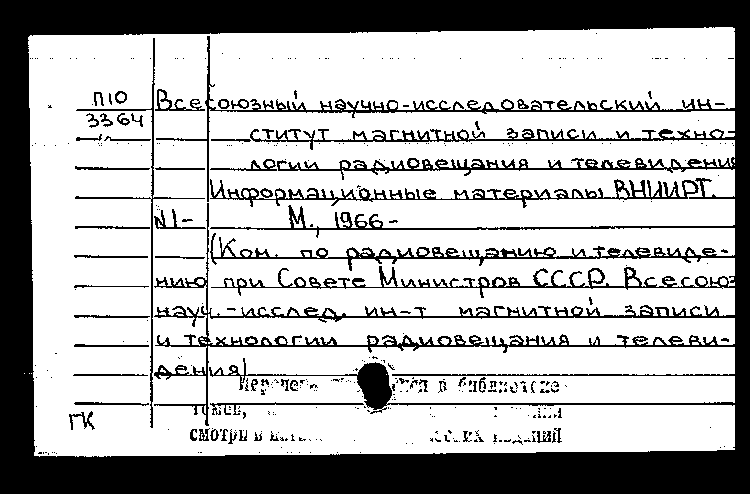 П10 Всесоюзный научно-исследовательский ин-
3364 ститут магнитной записи и техно-
логии радиовещания и телевидения
Информационные материалы ВНИИРТ.
N1- М., 1966-
(Ком. по радиовещанию и телевиде-
нию при Совете Министров СССР. Всесоюз
науч.-исслед. ин-т магнитной записи
и технологии радиовещания и телеви-
дения)
в библиотеке
ГК
смотри в изданий